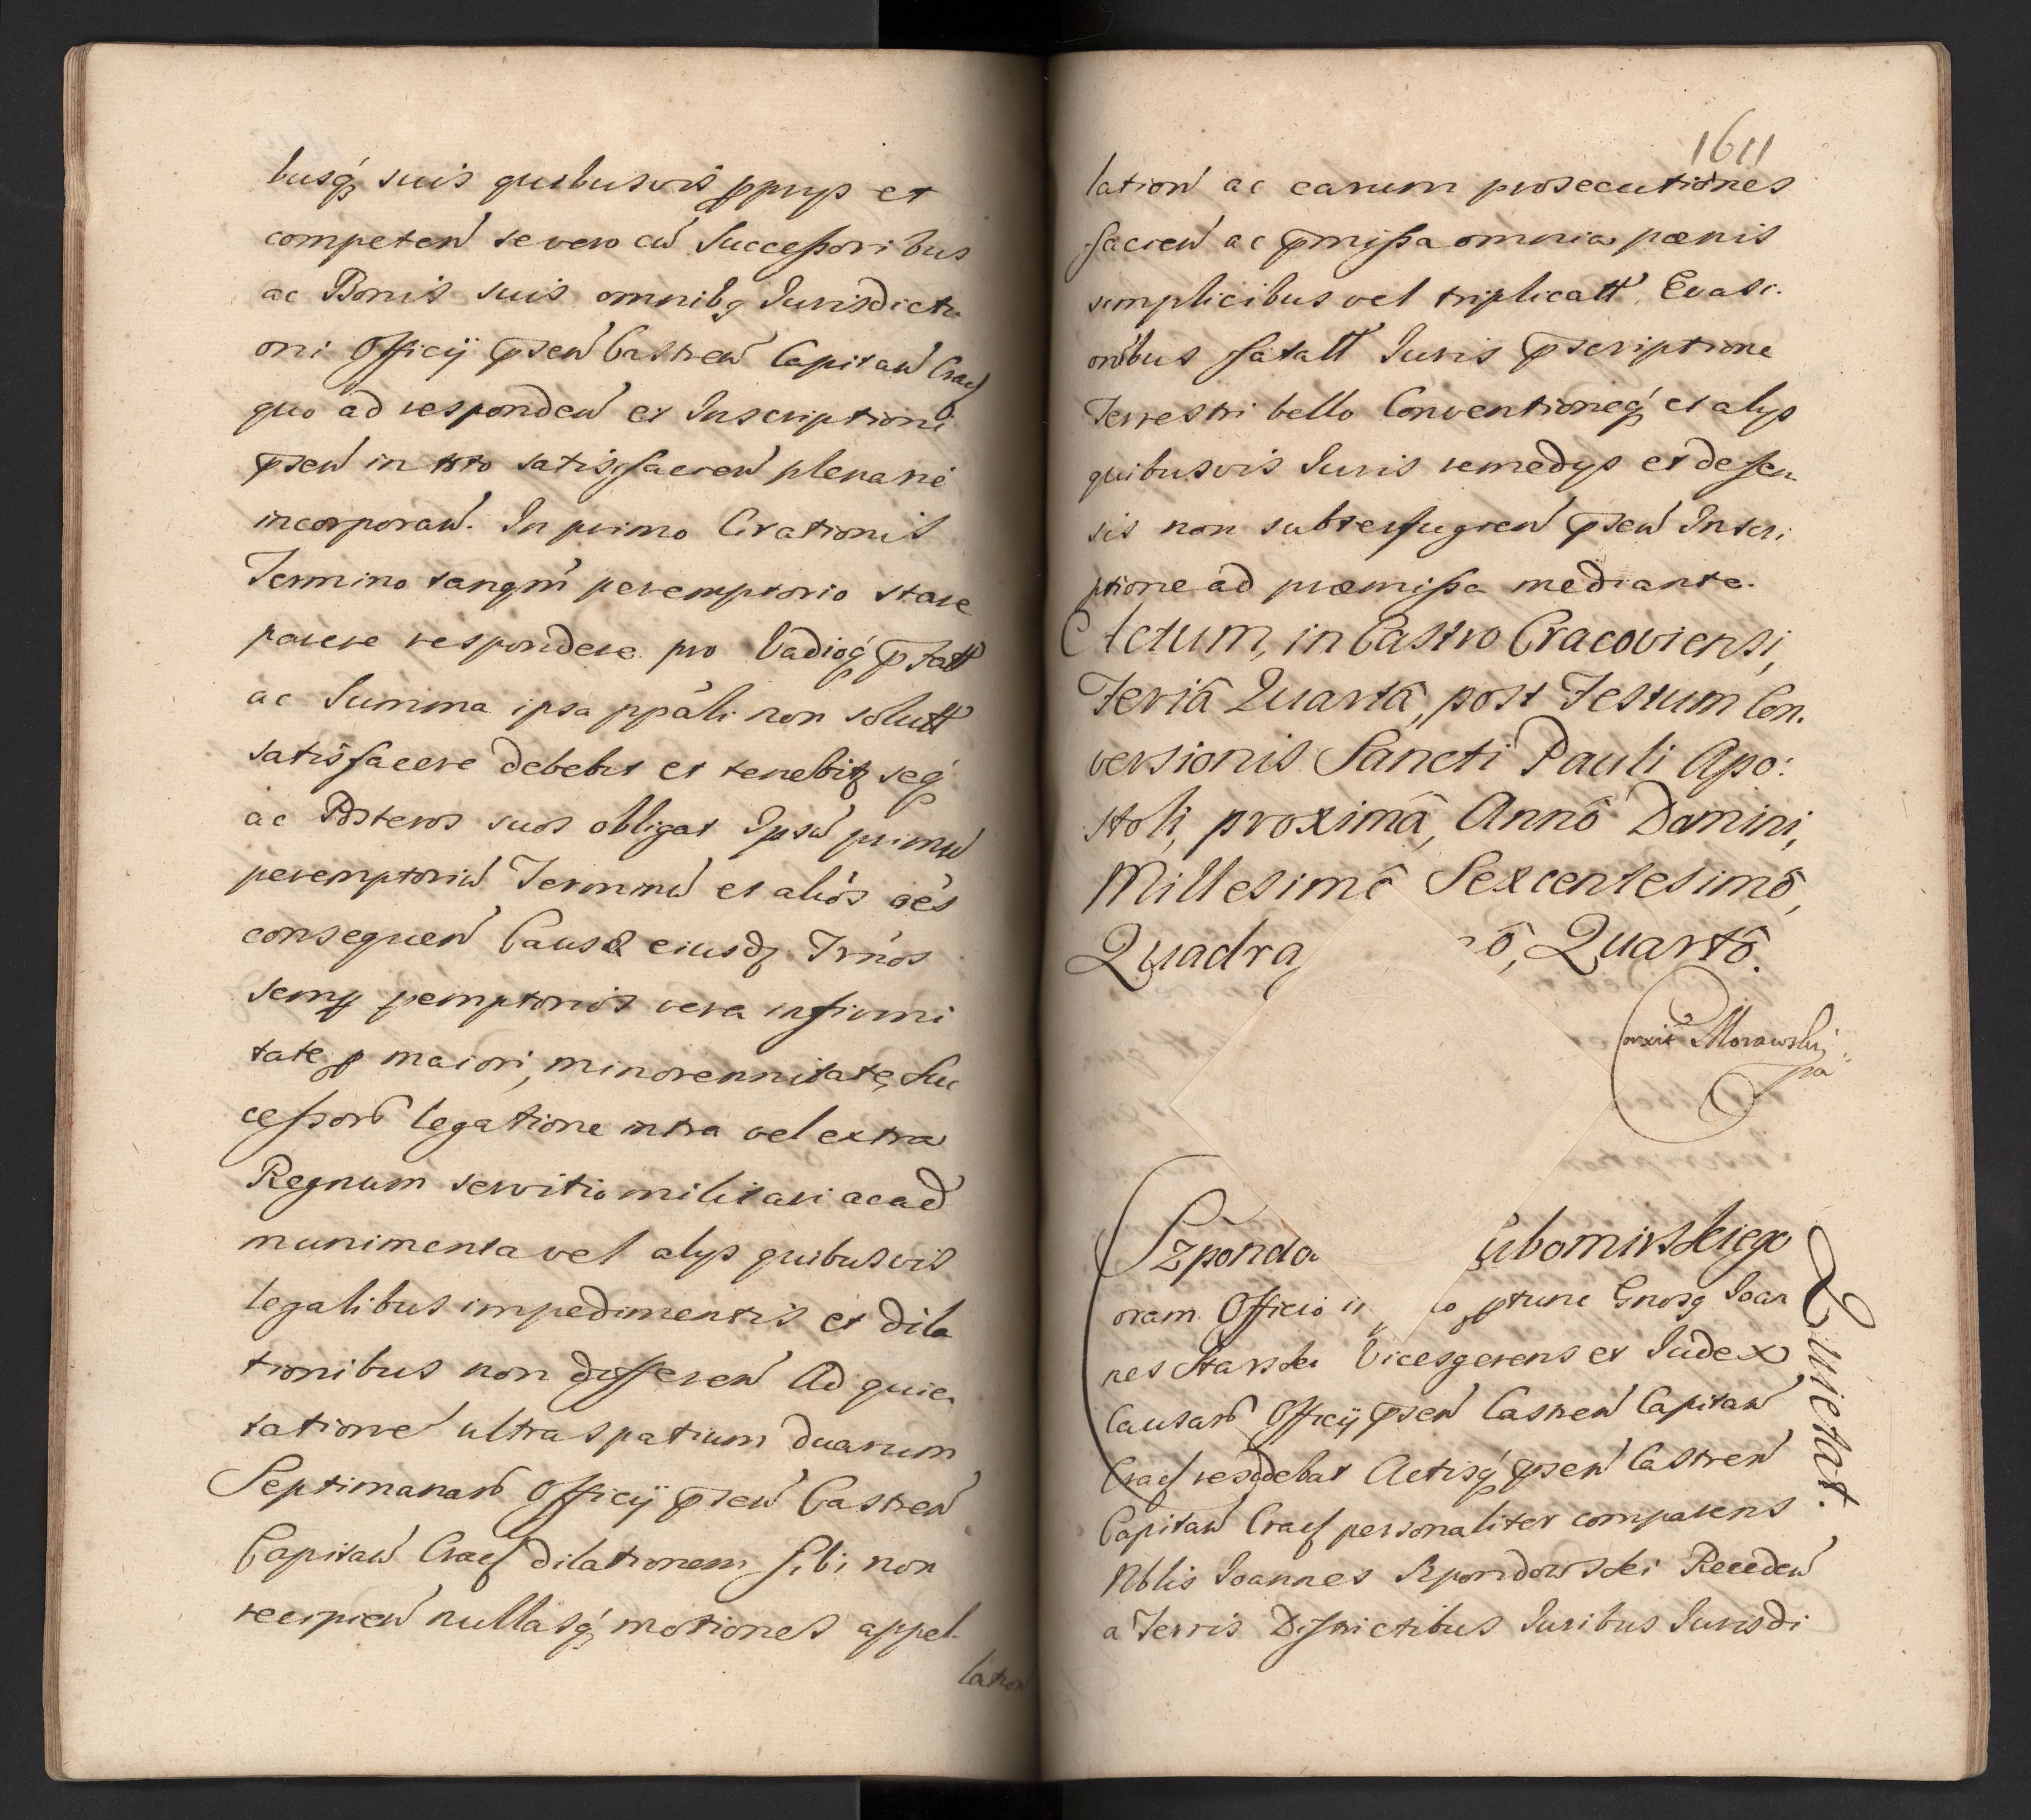 busq́ suis quibusvis ppriys et
competeń se vero cū Successoribus
ac Bonis suis omnibq Jurisdicti
oni Officij p̄seń Castreń Capitań Cracȷ
quo ad respondeń et Inscriptioni
p̄seń in toto satisfacień plenarie
incorporań. In primo Citationis
Termino tanqm̄ peremptorio stare
parere respondere pro Vadioq́ p̄fatt
ac Summa ipsa ppāli non solutt
satisfacere debebit et tenebitꝫ seq́
ac Posteros suos obligat Ipsū primū
peremptoriū Terminū et aliós óes
consequeń Causæ eiusdꝫ Trńos
semꝑ ꝑemptorios vera infirmi
tate ꝓ maiori, minorennitate, Suc
cessorꝭ legatione intra vel extra
Regnum servitio militari ac ad
munimenta vel alys quibusvis
legalibus impedimentis et dila
tionibus non differeń Ad quie
tationē ultra spatium duarum
Septimanarꝭ Officij p̄seń Castreń
Capitań Cracȷ dilationem sibi non
recipień nullasq́ motiones appel-
lation
1611
lationń ac earum prosecutiones
facień ac p̄missa omnia pœnis
simplicibus vel triplicatt. Evasi.
onibus fatatt Juris p̄scriptione
Terrestri bello Conventioneq́ et alys
quibusvis Juris remedys et defen
sis non subterfugień p̄seń Inscri
ptione ad præmissa mediante.
Actum, in Castro Cracoviensi,
Feriâ Quartâ, post Festum Con.
versionis Sancti Pauli Apo:
stoli, proximâ, Annô Domini,
Millesimô Sexcentesimô,
Quadra ô, Quartô.
Morawski
Szponda ubomirskiego
oram Officio Gnosq Joan
nes Starski Vicesgerens et Judex
Causarꝭ Officij p̄seń Castreń Capitań
Cracȷ residebat Actisq́ p̄seń Castreń
Capitań Cracȷ personaliter comparens
Nblis Joannes Szpondowski Recedeń
a Terris Districtibus Juribus Jurisdi
Quietat.